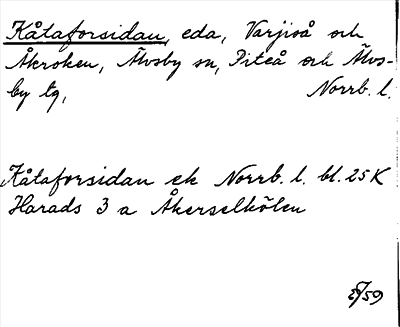 Kåtaforsidan, eda, Varjiså och
Åkroken, Älvsby sn, Piteå och Älvs-
by tg, Norrb. l.
Kåtaforsidan ek Norrb. l. bl. 25 K
Harads 3 a Åkerselkölen
/59